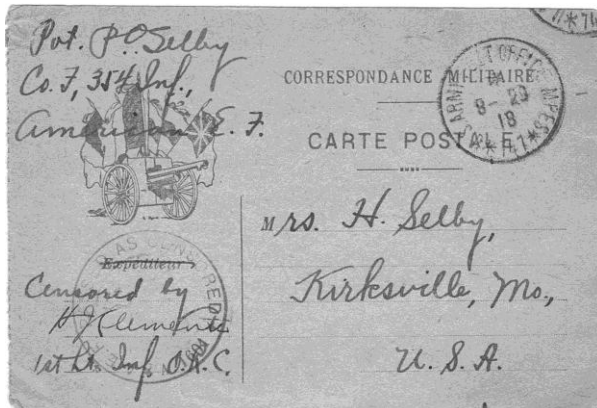 Pvt. P.O. Selby
Co. F, 354 Inf.,
American E. F.
CORRESPONDANCE MILITAIRE
CARTE POSTALE
U.S. ARMY POST OFFICE M.P.E.S.
8-29
18
*747*
Mrs. H. Selby,
Kirksville, Mo.,
U. S. A.
Expéditeur
Censored by
H J Clements
1st Lt. Inf.